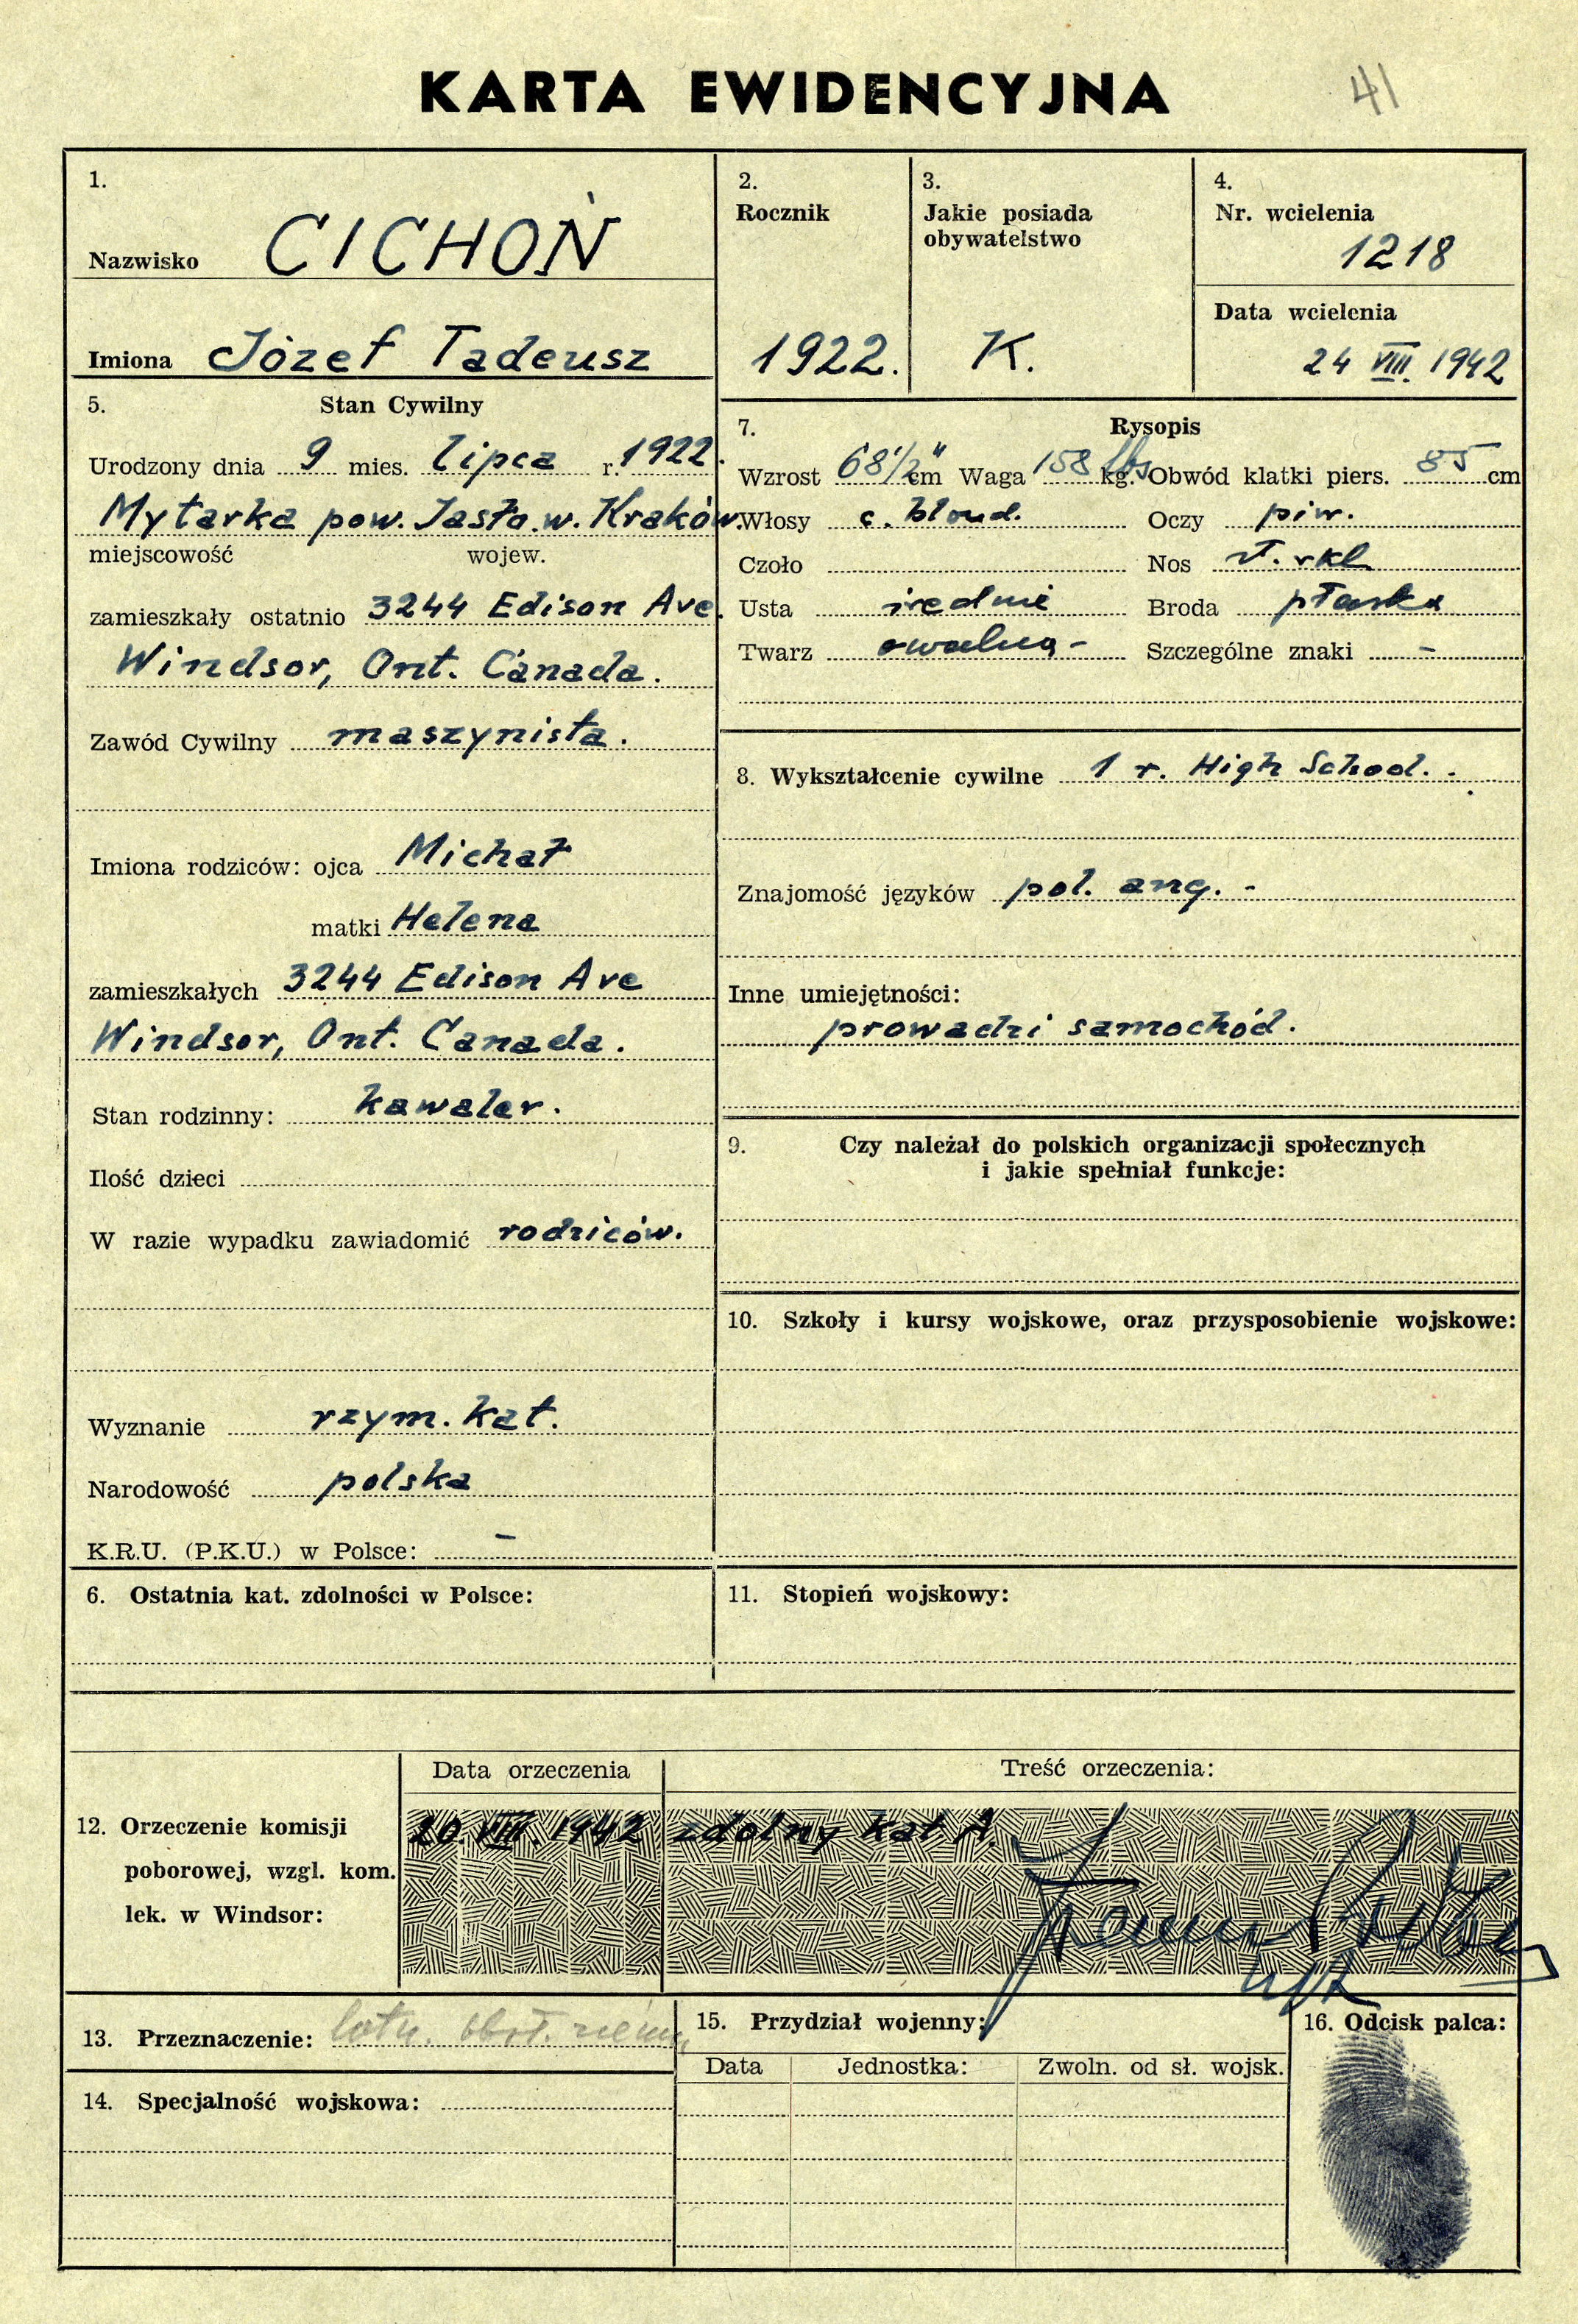 KARTA EWIDENCYJNA
41
1.
Nazwisko CICHOŃ
Imiona Józef Tadeusz
2.
Rocznik
1922.
3.
Jakie posiada
obywatelstwo
K.
4.
Nr. wcielenia
1218
Data wcielenia
24 VIII. 1942
5. Stan Cywilny
Urodzony dnia 9 mies. lipca r. 1922.
Mytarka pow. Jasło. w. Kraków.
miejscowość wojew.
zamieszkały ostatnio 3244 Edison Ave.
Windsor, Ont. Canada.
Zawód Cywilny maszynista.
Imiona rodziców: ojca Michał
matki Helena
zamieszkałych 3244 Edison Ave
Windsor, Ont. Canada.
Stan rodzinny: kawaler.
Ilość dzieci
W razie wypadku zawiadomić rodziców.
Wyznanie rzym. kat.
Narodowość polska
K.R.U. (P.K.U.) w Polsce: –
6. Ostatnia kat. zdolności w Polsce:
7. Rysopis
Wzrost 68½" cm Waga 158 lbs kg. Obwód klatki piers. 85 cm
Włosy c. blond. Oczy piw.
Czoło Nos
Usta średnie Broda płaska
Twarz owalna - Szczególne znaki –
8. Wykształcenie cywilne 1 r. High School. -
Znajomość języków pol. ang. -
Inne umiejętności:
prowadzi samochód.
9. Czy należał do polskich organizacji społecznych
i jakie spełniał funkcje:
10. Szkoły i kursy wojskowe, oraz przysposobienie wojskowe:
11. Stopień wojskowy:
12. Orzeczenie komisji
poborowej, wzgl. kom.
lek. w Windsor:
Data orzeczenia
20. VIII. 1942
Treść orzeczenia:
zdolny kat. A.
13. Przeznaczenie: lotn.
14. Specjalność wojskowa:
15. Przydział wojenny:
Data Jednostka: Zwoln. od sł. wojsk.
16. Odcisk palca: